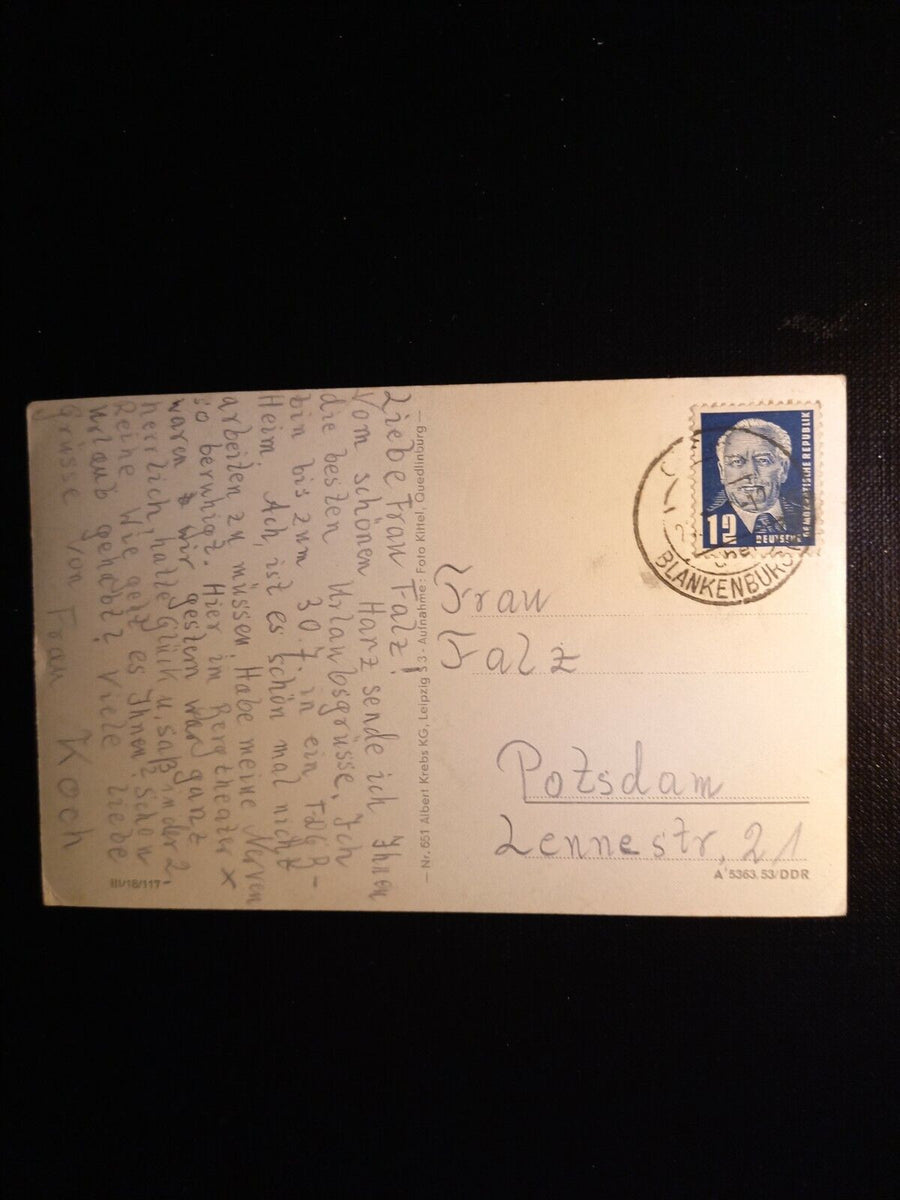 Liebe Frau Falz!
Vom schönen Harz sende ich Ihnen
die besten Urlaubsgrüsse, Ich
bin bis zum 30.7. in ein FDGB-
Heim Ach, ist es schön mal nicht
arbeiten zu müssen. Habe meine Nerven
so beruhigt. Hier im Bergtheater x
waren wir gestern war ganz
herrlich, hatte Glück u, saß in der 2
Reihe Wie geht es Ihnen? Schon
Urlaub gehabt? Viele liebe
Grüsse von Frau Koch
III/18/117
— Nr. 651 Albert Krebs KG, Leipzig S 3 - Aufnahme: Foto Kittel, Quedlinburg —
12
DEUTSCHE
DEMOKRATISCHE REPUBLIK
BLANKENBURG
Frau
Falz
Potsdam
Lennestr, 21
A 5363/53/DDR